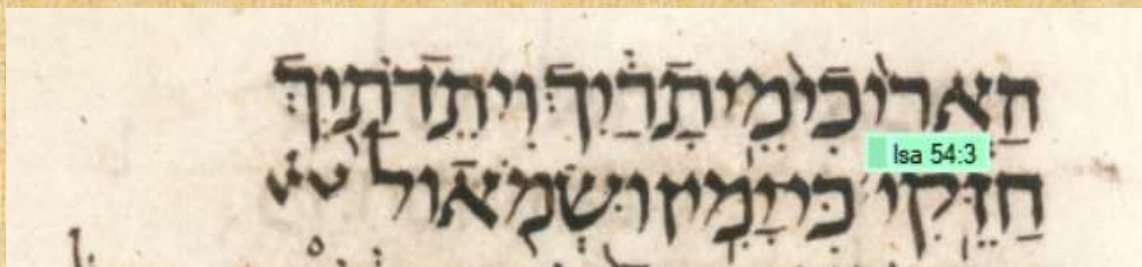 הַאֲרִיכִי מֵיתָרַיִךְ וִיתֵדֹתַיִךְ
Isa 54:3
חַזֵּקִי׃ כִּי יָמִין וּשְׂמֹאול